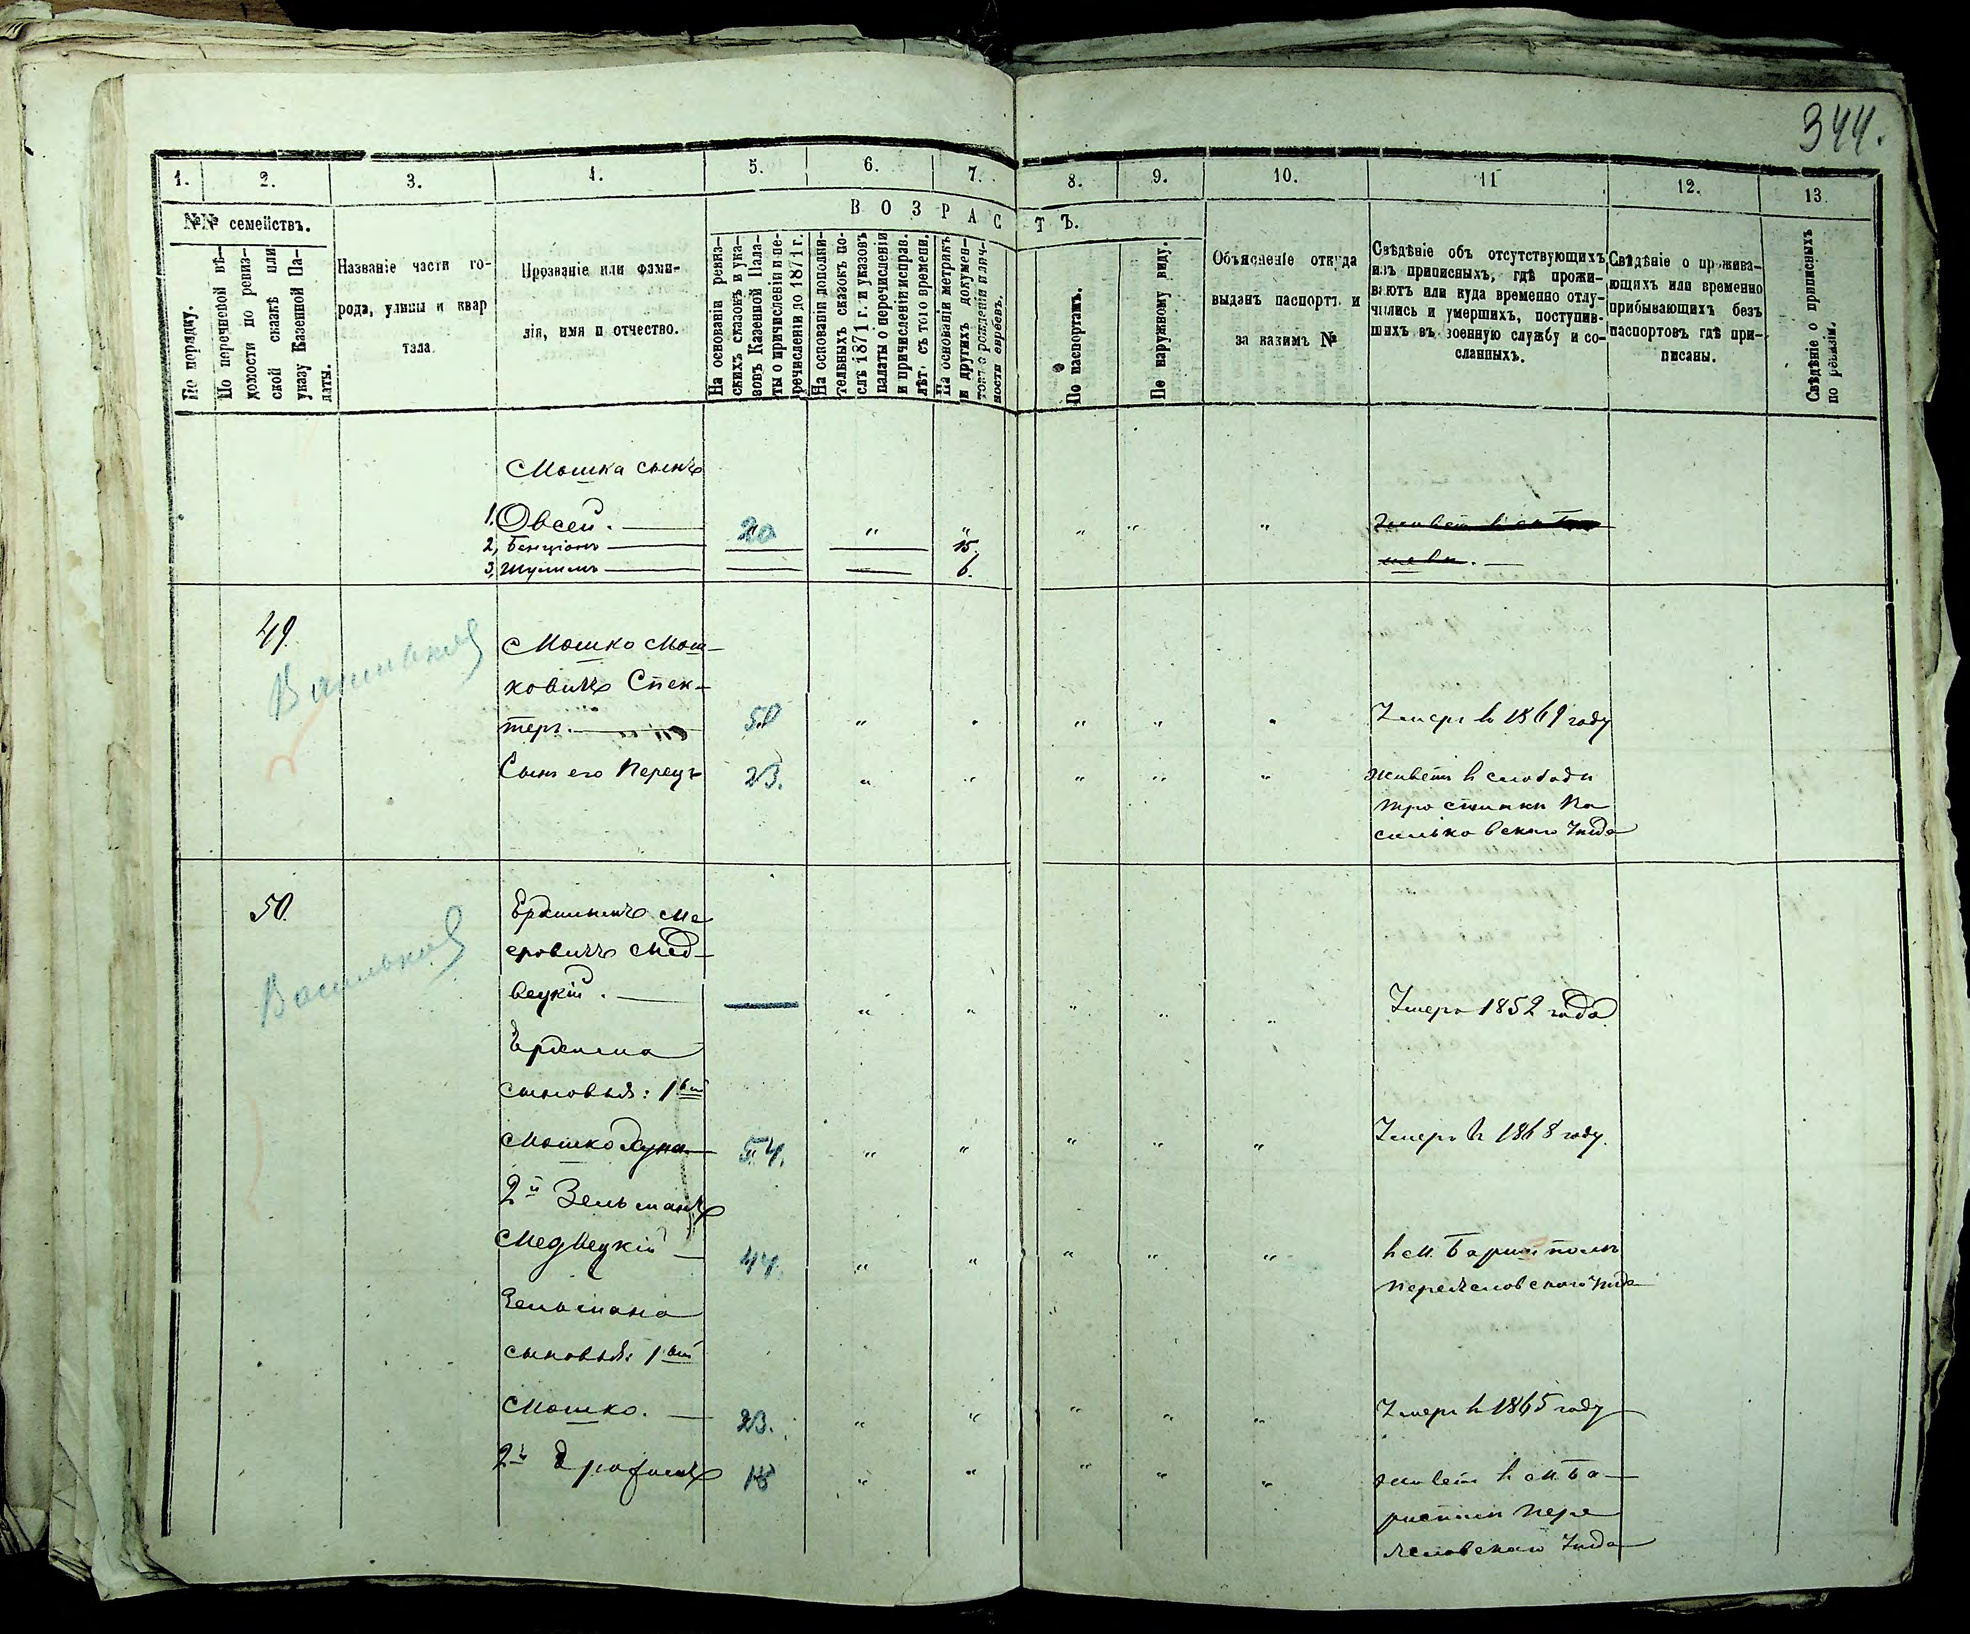 344.
1. 2. 3. 4. 5. 6. 7. 8. 9. 10. 11 12. 13.
№№ семействъ.
ВОЗРАСТЪ.
По порядку.
По перечневой вѣ-
домости по ревиз-
ской сказкѣ или
указу Казенной Па-
латы.
Названіе части го-
рода, улицы и квар
тала.
Прозваніе или фами-
лія, имя и отчество.
На основаніи ревиз-
скихъ сказокъ и ука-
зовъ Казенной Пала-
ты о причисленіи и пе-
речисленіи до 1871 г.
На основаніи дополни-
тельныхъ сказокъ по-
слѣ 1871 г. и указовъ
палаты о перечисленіи
и причисленіи исправ.
лѣт. съ того времени.
На основаніи метрикъ
и другихъ докумен-
товъ о рожденіи и лич-
ности евреевъ.
По паспортамъ.
По наружному виду.
Объясненіе откуда
выданъ паспортъ и
за какимъ №
Свѣдѣніе объ отсутствующихъ
изъ приписныхъ, гдѣ прожи-
ваютъ или куда временно отлу-
чились и умершихъ, поступив-
шихъ въ военную службу и со-
сланныхъ.
Свѣдѣніе о прожива-
ющихъ или временно
прибывающихъ безъ
паспортовъ гдѣ при-
писаны.
Свѣдѣніе о приписныхъ
по ревизіи.
Мошка сынъ
1. Овсей. 20 " " " " "
2, Бенціонъ 15.
3, Шулимъ 6.
49.
Васильков
Мошко Мош-
ковичъ Спек-
теръ. 50 " " " " " Умеръ в 1869 году
Сынъ его Перецъ 23. " " " " " живетъ в слободи
Василько вскаго Уѣзда
50.
Васильков
Ме
еровичъ Мед-
вецкій. " " " " " Умеръ 1852 года
сыновья: 1вый
Мошко 54. " " " " " Умеръ в 1868 году.
2й Зельманъ
Медвецкій 44. " " " " " в м. Барисполи
Переяславскаго Уѣзда
Зельмана
сыновья: 1вый
Мошко. 23. " " " " " Умеръ в 1865 году
2й 18 " " " " " живетъ в м. Ба-
рисполи Пере
яславскаго Уѣзда